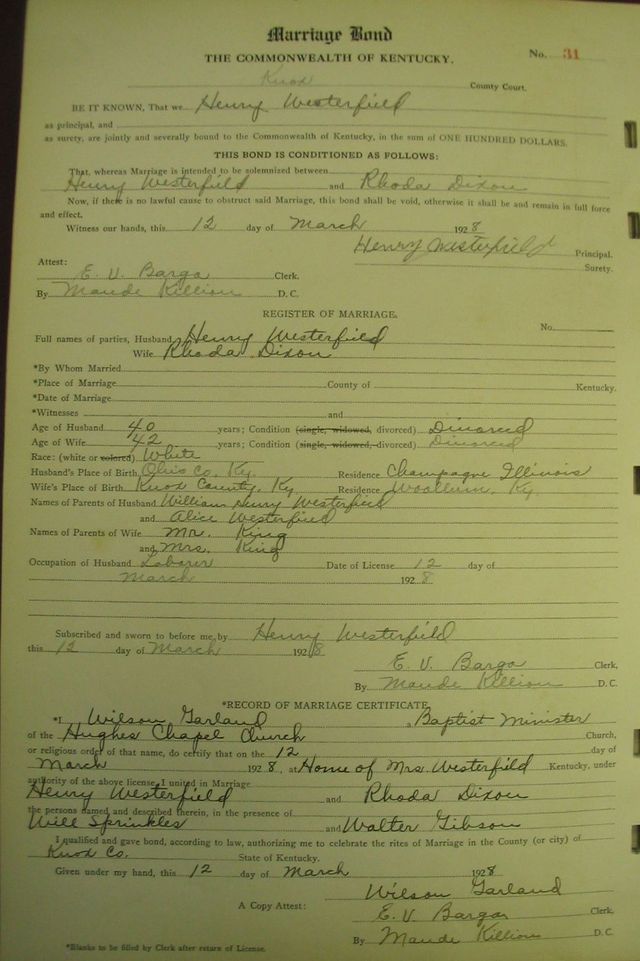 Marriage Bond
THE COMMONWEALTH OF KENTUCKY.
No. 31
Knox County Court.
BE IT KNOWN, That we Henry Westerfield
as principal, and
as surety, are jointly and severally bound to the Commonwealth of Kentucky, in the sum of ONE HUNDRED DOLLARS.
THIS BOND IS CONDITIONED AS FOLLOWS:
That, whereas Marriage is intended to be solemnized between
Henry Westerfield and Rhoda Dixon
Now, if there is no lawful cause to obstruct said Marriage, this bond shall be void, otherwise it shall be and remain in full force
and effect.
Witness our hands, this 12 day of March 1928
Henry Westerfield Principal.
Surety.
Attest:
E. V. Barga Clerk.
By Maude Killion D. C.
REGISTER OF MARRIAGE.
No.
Full names of parties, Husband Henry Westerfield
Wife Rhoda Dixon
*By Whom Married
*Place of Marriage County of Kentucky.
*Date of Marriage
*Witnesses and
Age of Husband 40 years; Condition (single, widowed, divorced) Divorced
Age of Wife 42 years; Condition (single, widowed, divorced) Divorced
Race: (white or colored) White
Husband's Place of Birth Ohio Co. Ky. Residence Champagne Illinois
Wife's Place of Birth Knox County, Ky Residence Woollum, Ky.
Names of Parents of Husband William Henry Westerfield
and Alice Westerfield
Names of Parents of Wife Mr. King
and Mrs. King
Occupation of Husband Laborer Date of License 12 day of
March 1928
Subscribed and sworn to before me by Henry Westerfield
this 12 day of March 1928
E. V. Barga Clerk,
By Maude Killion D. C.
*RECORD OF MARRIAGE CERTIFICATE.
*I Wilson Garland a Baptist Minister
of the Hughes Chapel Church Church,
or religious order of that name, do certify that on the 12 day of
March 1928, at Home of Mrs. Westerfield Kentucky, under
authority of the above license, I united in Marriage
Henry Westerfield and Rhoda Dixon
the persons named and described therein, in the presence of
Will Sprinkles and Walter Gibson
I qualified and gave bond, according to law, authorizing me to celebrate the rites of Marriage in the County (or city) of
Knox Co. State of Kentucky.
Given under my hand, this 12 day of March 1928
Wilson Garland
A Copy Attest: E. V. Barga Clerk,
By Maude Killion D. C.
*Blanks to be filled by Clerk after return of License.